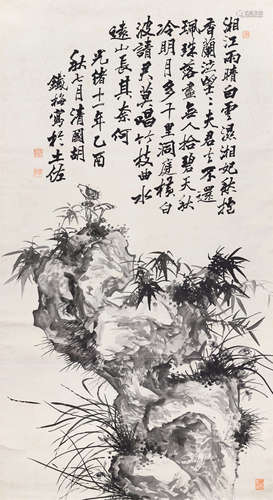 湘江雨晴白雲濕湘妃愁抱
香蘭泣望夫君
兮不還
珮珠落盡無人拾碧天秋
冷明月多千里洞庭橫白
波諸君莫唱竹枝曲水
遠山長其奈何
光緒十一年乙酉
秋七月清國胡
鐵梅寫於土佐